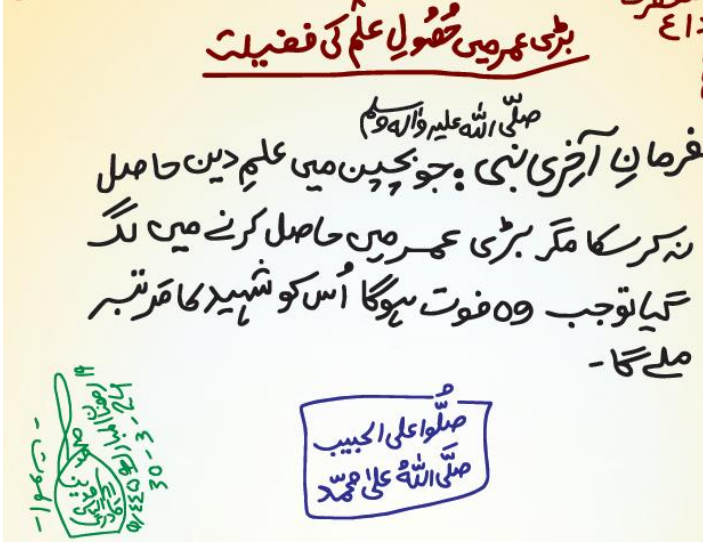 بڑی عمر میں حُصُولِ علْم کی فضیلت
صلَّی اللہ علیہ واٰلہٖ وسلم
فرمانِ آخِری نبی : جو بچپن میں علمِ دین حاصل
نہ کر سکا مگر بڑی عمر میں حاصل کرنے میں لگ
گیا تو جب وہ فوت ہوگا اُس کو شہید کا مَرتبہ
ملے گا۔
صَلُّوا علی الحبیب
صلَّی اللّٰهُ علیٰ محمّد
30-3-24